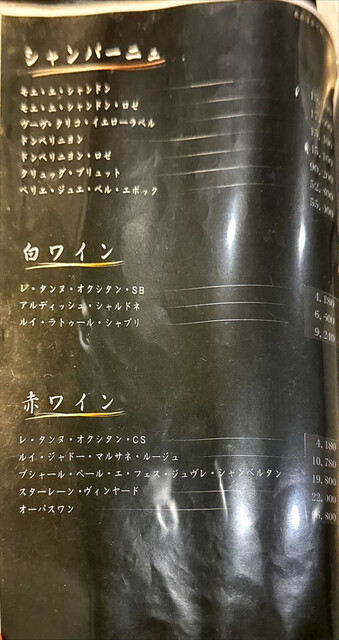 シャンパーニュ
モエ・エ・シャンドン
モエ・エ・シャンドン・ロゼ
ヴーヴ・クリコ・イエローラベル
ドンペリニヨン
ドンペリニヨン・ロゼ 90,200
クリュッグ・ブリュット 52,800
ペリエ・ジュエ・ベル・エポック 55,000
白ワイン
レ・タンヌ・オクシタン・SB 4,180
アルディッシュ・シャルドネ 6,600
ルイ・ラトゥール・シャブリ 9,240
赤ワイン
レ・タンヌ・オクシタン・CS 4,180
ルイ・ジャドー・マルサネ・ルージュ 10,780
ブシャール・ペール・エ・フィス・ジュヴレ・シャンベルタン 19,800
スターレーン・ヴィンヤード 22,000
オーパスワン